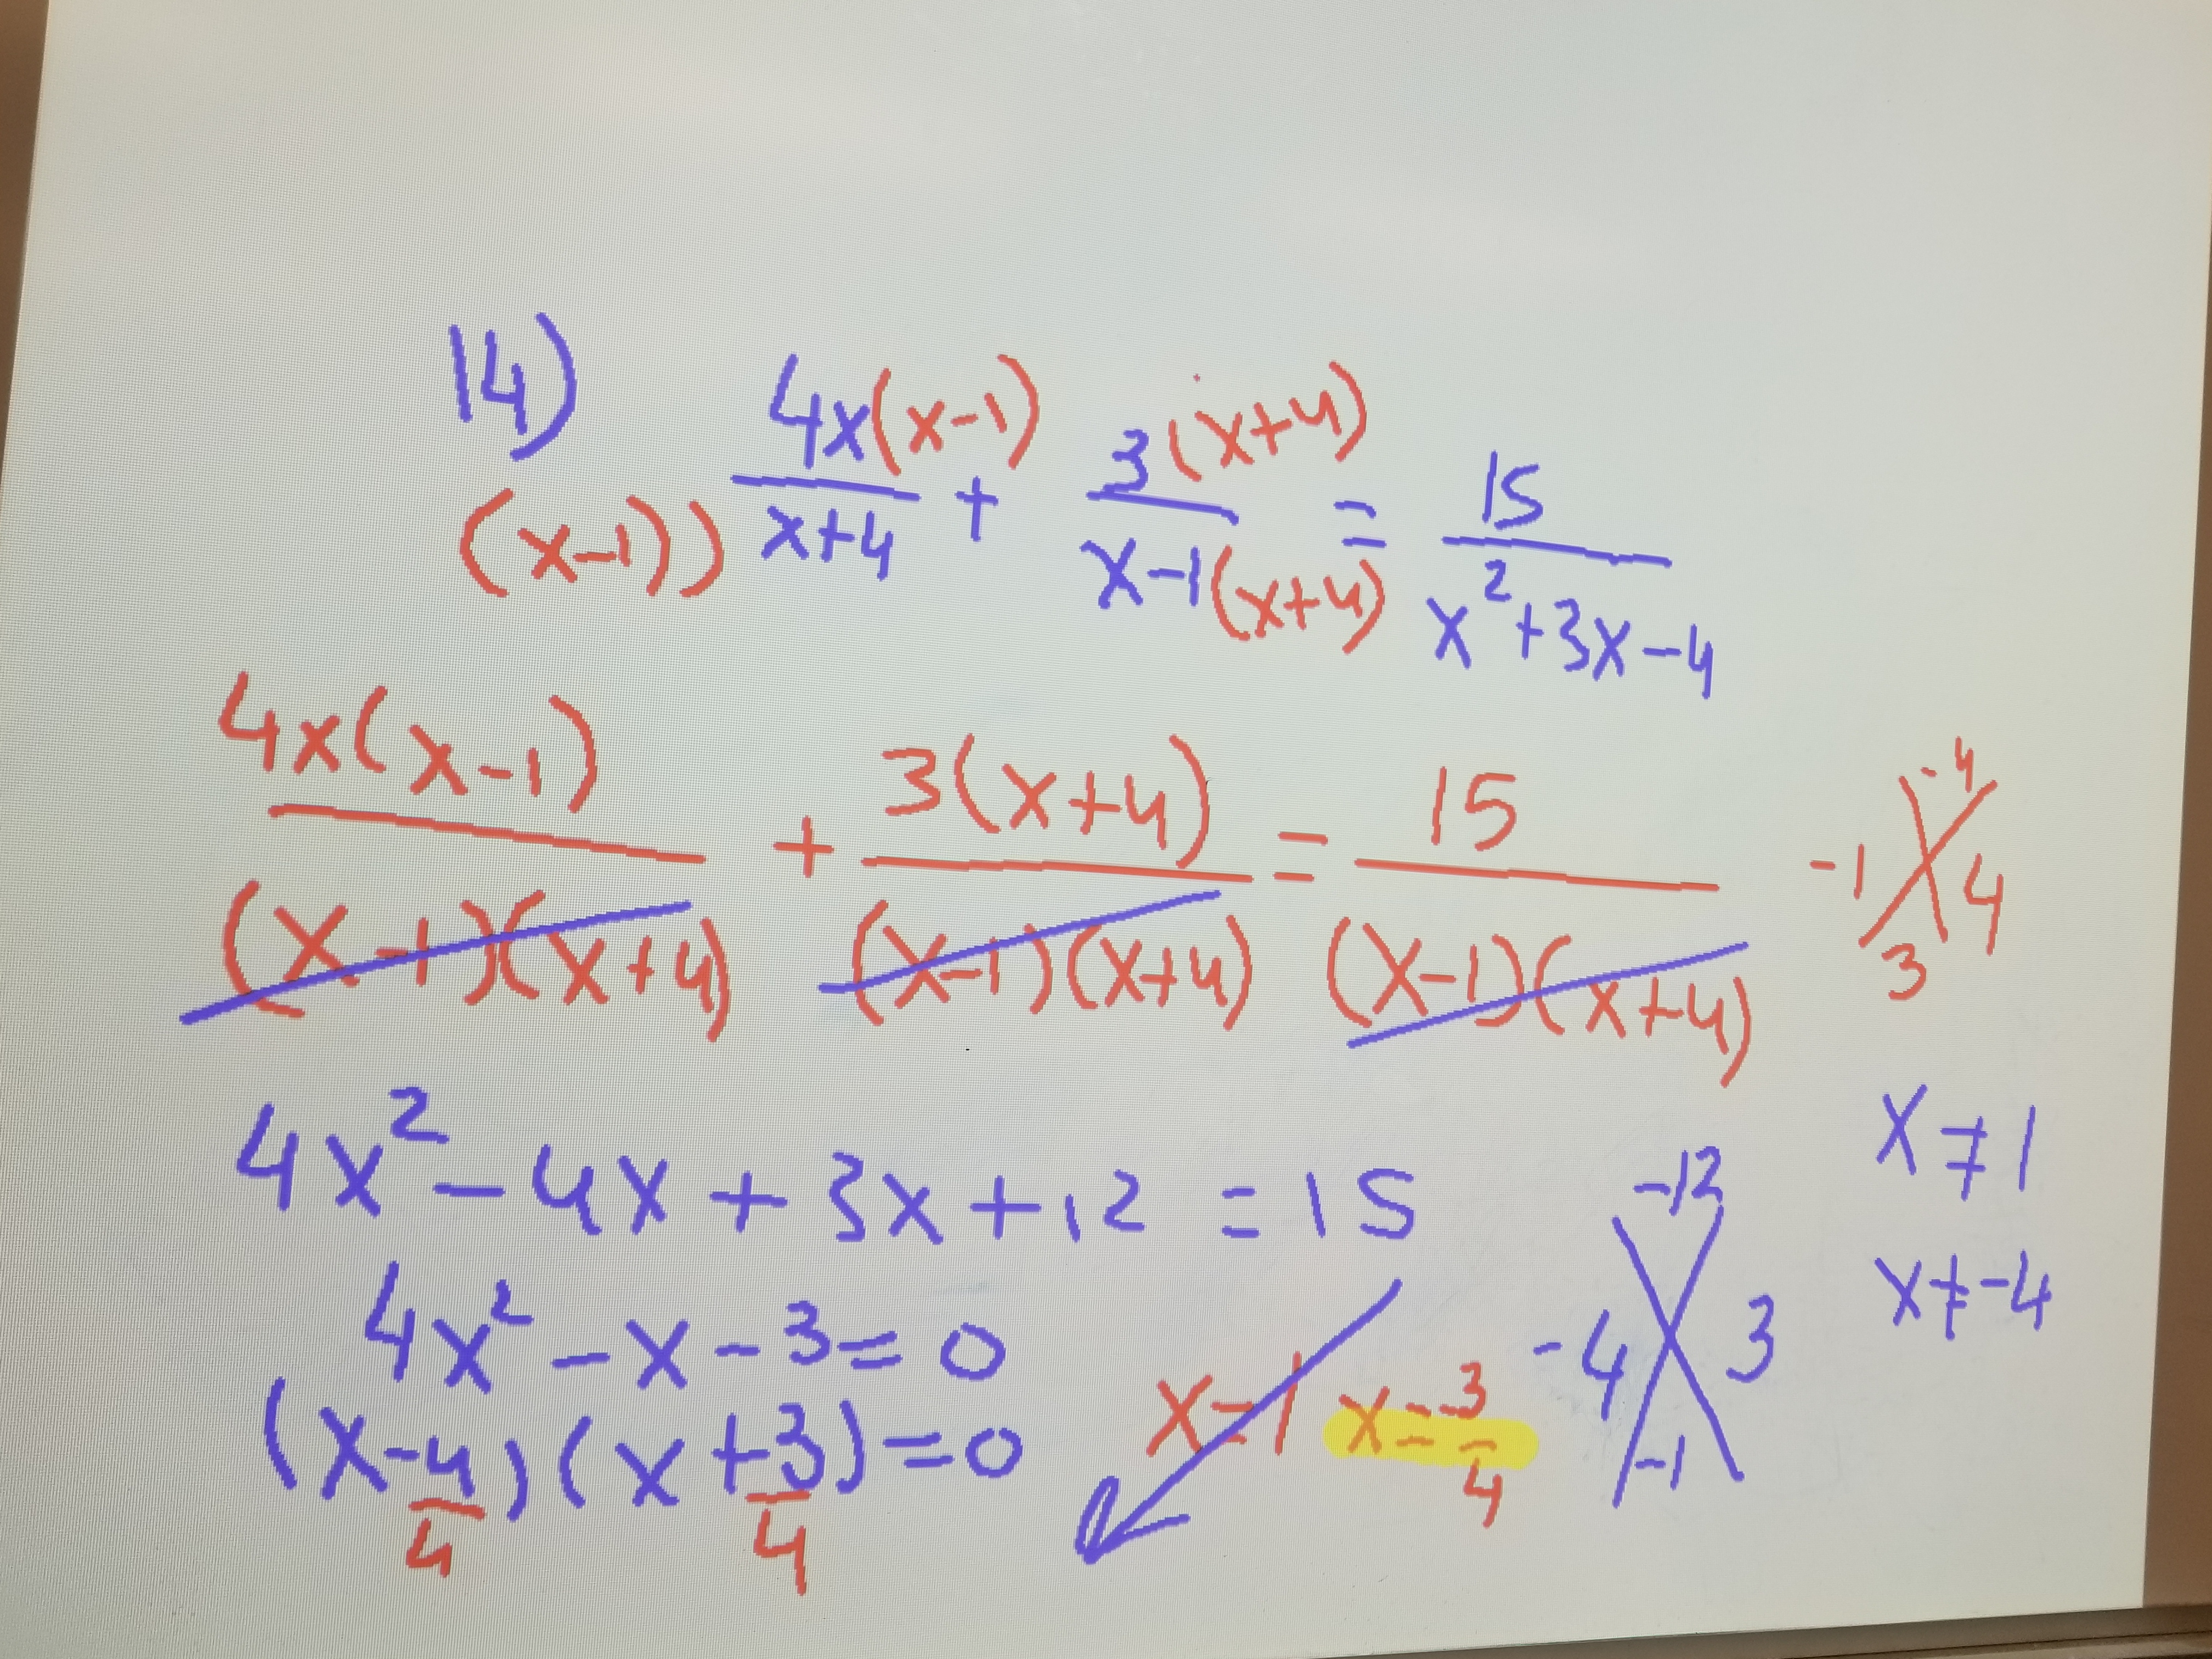 14) 4x(x-1)/(x-1))x+4 + 3(x+4)/x-1(x+4) = 15/x²+3x-4
4x(x-1)/(x-1)(x+4) + 3(x+4)/(x-1)(x+4) = 15/(x-1)(x+4)
-4
-1 4
3
4x²-4x+3x+12=15
4x²-x-3=0
(x-4/4)(x+3/4)=0
x=1 x=-3/4
-12
-4 3
-1
x≠1
x≠-4